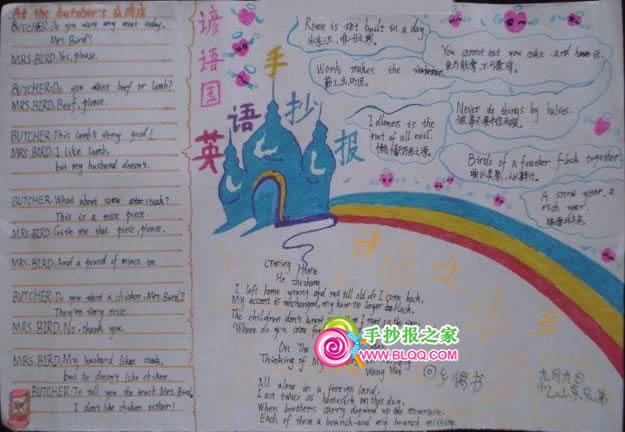 At the butcher's 在肉店
BUTCHER: Do you want any meat today,
Mrs. Bird?
MRS. BIRD: Yes, please.
BUTCHER: Do you want beef or lamb?
MRS. BIRD: Beef, please.
BUTCHER: This lamb's very good!
MRS. BIRD: I like lamb,
but my husband doesn't.
BUTCHER: What about some steak?
This is a nice piece.
MRS. BIRD: Give me that piece, please.
MRS. BIRD: And a pound of mince too.
BUTCHER: Do you want a chicken, Mrs. Bird?
They're very nice.
MRS. BIRD: No, thank you.
MRS. BIRD: My husband likes steak,
but he doesn't like chicken.
BUTCHER: To tell you the truth Mrs. Bird,
I don't like chicken either!
谚语国
英语手抄报
Rome is not built in a day
Work makes the
You cannot eat you cake and have it.
Idleness is the
root of all evil.
Never do things by halves.
Birds of a feather flock together
A snow year, a
rich year.
诗 之
Coming Home
He Zhizhang
I left home young and not till old do I come back,
My accent is unchanged, my hair no longer black.
The children don't know
Where do you come
On The
Thinking of My
Wang Wei
All alone in a foreign land,
I am twice as homesick on this day,
When brothers carry dogwood up the mountain,
Each of them a branch and my branch missing.
回乡偶书
九月九日
忆山东兄弟
手抄报之家
WWW.BLQQ.COM